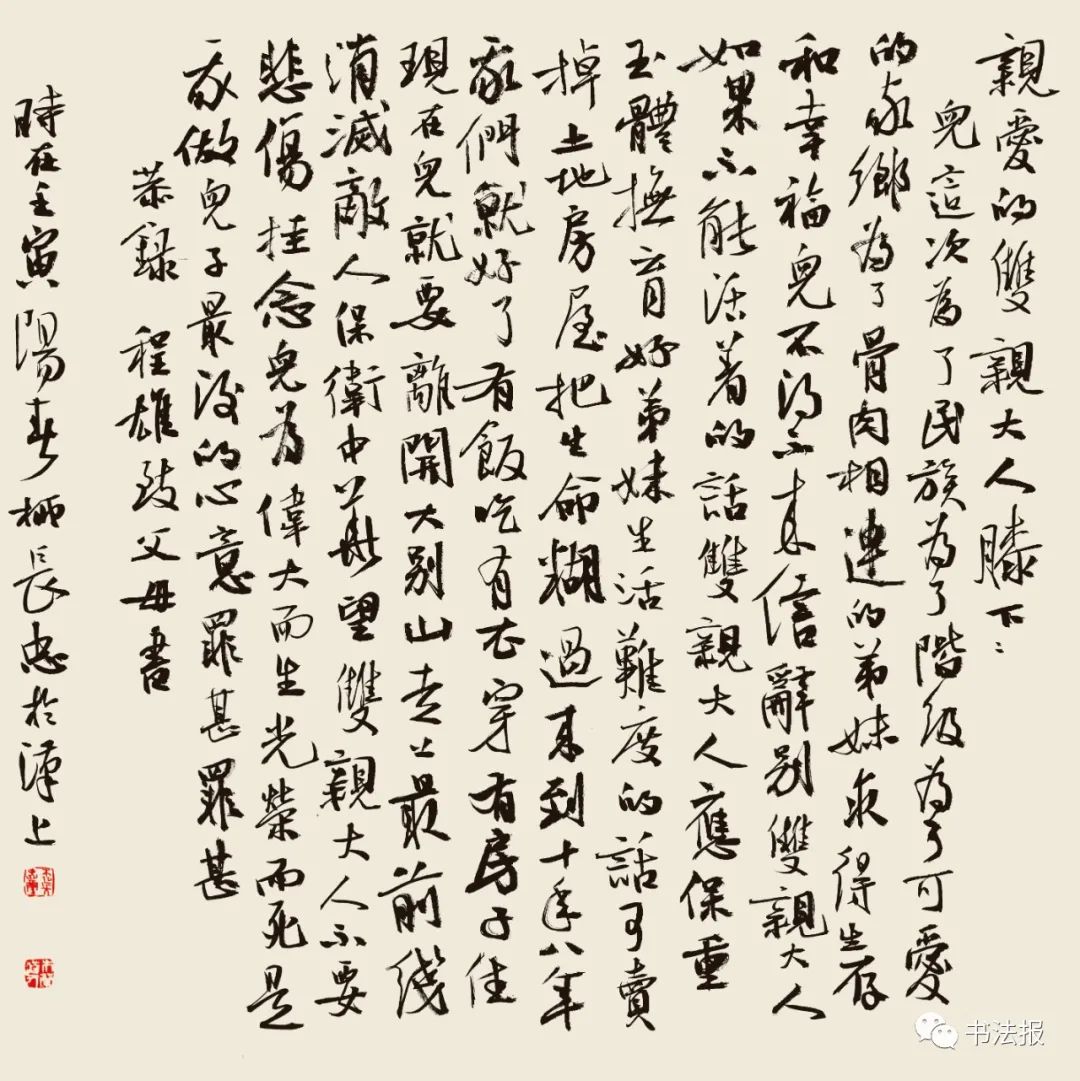 親愛的雙親大人膝下:
兒這次為了民族為了階级為了可愛
的家鄉為了骨肉相連的弟妹求得生存
和幸福兒不得不來信辭别雙親大人
如果不能活着的話雙親大人應保重
玉體撫育好弟妹生活難度的話可賣
掉土地房屋把生命糊過來到十年八年
我們就好了有飯吃有衣穿有房子住
現在兒就要離開大别山走上最前綫
消滅敵人保衛中華望雙親大人不要
悲傷挂念兒為偉大而生光榮而死是
我做兒子最後的心意罪甚罪甚
恭錄 程雄致父母書
時在壬寅陽春柳長忠於漢上
书法报